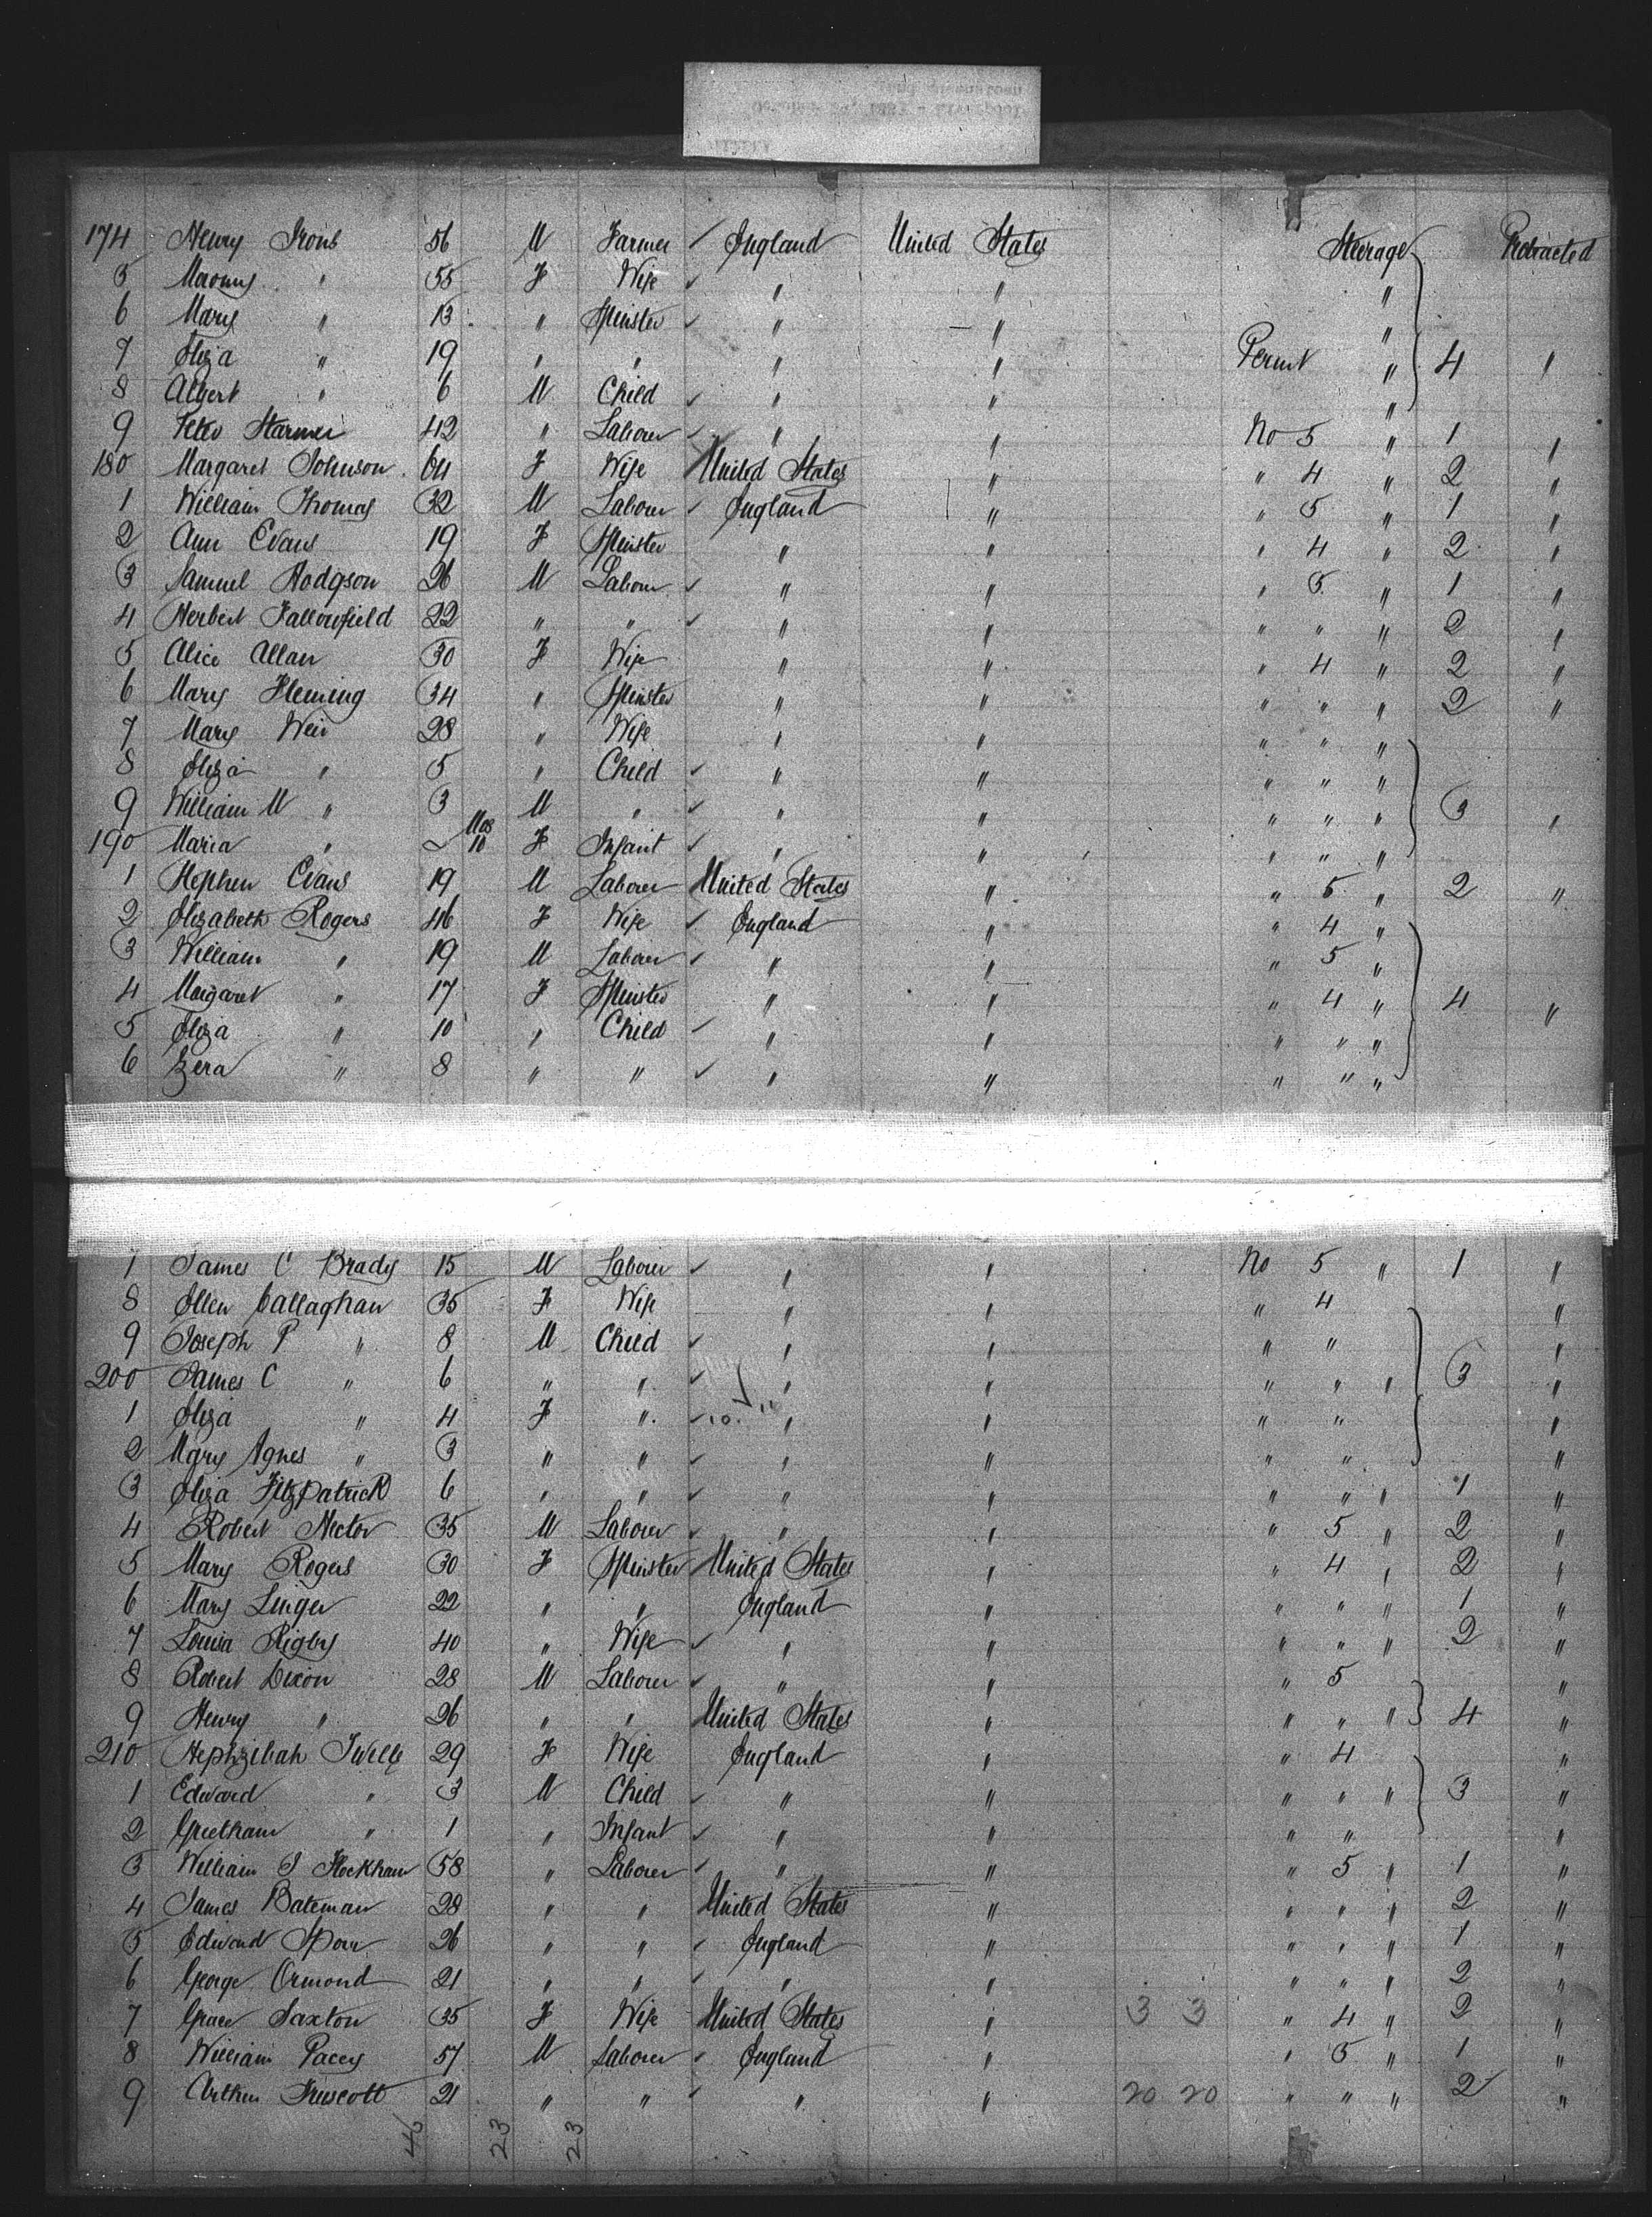 174 Henry Irons 56 M Farmer ✓ England United States Steerage Protracted
5 " 55 F Wife ✓ " " "
6 Mary " 13 " Spinster ✓ " " "
7 Eliza " 19 " " " " Permit " 4 "
8 Albert " 6 M Child ✓ " " "
9 Peter Starmer 42 " Laborer ✓ " " No 5 " 1 "
180 Margaret Johnson 64 F Wife United States " " 4 " 2 "
1 William Thomas 32 M Laborer ✓ England " " 5 " 1 "
2 Ann Evans 19 F Spinster " " " 4 " 2 "
3 Samuel Hodgson 26 M Laborer ✓ " " " 5 " 1 "
4 Herbert Fallowfield 22 " " ✓ " " " " " 2 "
5 Alice Allan 30 F Wife " " " 4 " 2 "
6 Mary Fleming 34 " Spinster " " " " " 2 "
7 Mary Weir 28 " Wife " " " " "
8 Eliza " 5 " Child ✓ " " " " "
9 William M " 3 M " ✓ " " " " " 3 "
190 Maria " Mos 10 F Infant ✓ " " " " "
1 Stephen Evans 19 M Laborer United States " " 5 " 2 "
2 Elizabeth Rogers 46 F Wife ✓ England " " 4 "
3 William " 19 M Laborer ✓ " " " 5 "
4 Margaret " 17 F Spinster " " " 4 " 4 "
5 Eliza " 10 " Child ✓ " " " " "
6 " 8 " " ✓ " " " " "
7 James C Brady 15 M Laborer ✓ " " No 5 " 1 "
8 Ellen Callaghan 35 F Wife " " " 4 "
9 Joseph P " 8 M Child ✓ " " " " "
200 James C " 6 " " ✓ " " " " " 3 "
1 Eliza " 4 F " ✓ " " " " "
2 Mary Agnes " 3 " " ✓ " " " " "
3 Eliza Fitzpatrick 6 " " ✓ " " " " " 1 "
4 Robert Nector 35 M Laborer ✓ " " " 5 " 2 "
5 Mary Rogers 30 F Spinster United States " " 4 " 2 "
6 Mary Linger 22 " " England " " " " 1 "
7 Louisa Rigby 40 " Wife ✓ " " " " " 2 "
8 Robert Dixon 28 M Laborer ✓ " " " 5 "
9 Henry " 26 " " United States " " " " 4 "
210 Hephzibah 29 F Wife England " " 4 "
1 Edward " 3 M Child ✓ " " " " " 3 "
2 Greetham " 1 " Infant ✓ " " " " "
3 William J Stockham 58 " Laborer ✓ " " " 5 " 1 "
4 James Bateman 28 " " United States " " " " 2 "
5 Edward Spour 26 " " ✓ England " " " " 1 "
6 George Ormond 21 " " ✓ " " " " " 2 "
7 Grace Saxton 35 F Wife United States " 3 3 " 4 " 2 "
8 William Pacey 57 M Laborer ✓ England " " 5 " 1 "
9 Arthur Truscott 21 " " ✓ " " 20 20 " " " 2 "
46 23 23